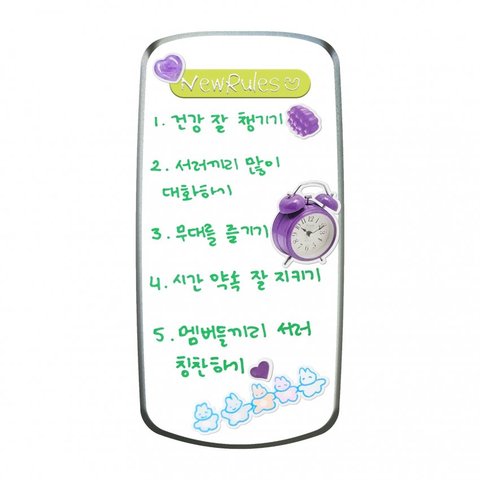 NewRules♡
1. 건강 잘 챙기기
2. 서러끼리 많이
대화하기
3. 무대를 즐기기
4. 시간 약속 잘 지키기
5. 멤버들끼리 서러
칭찬하기